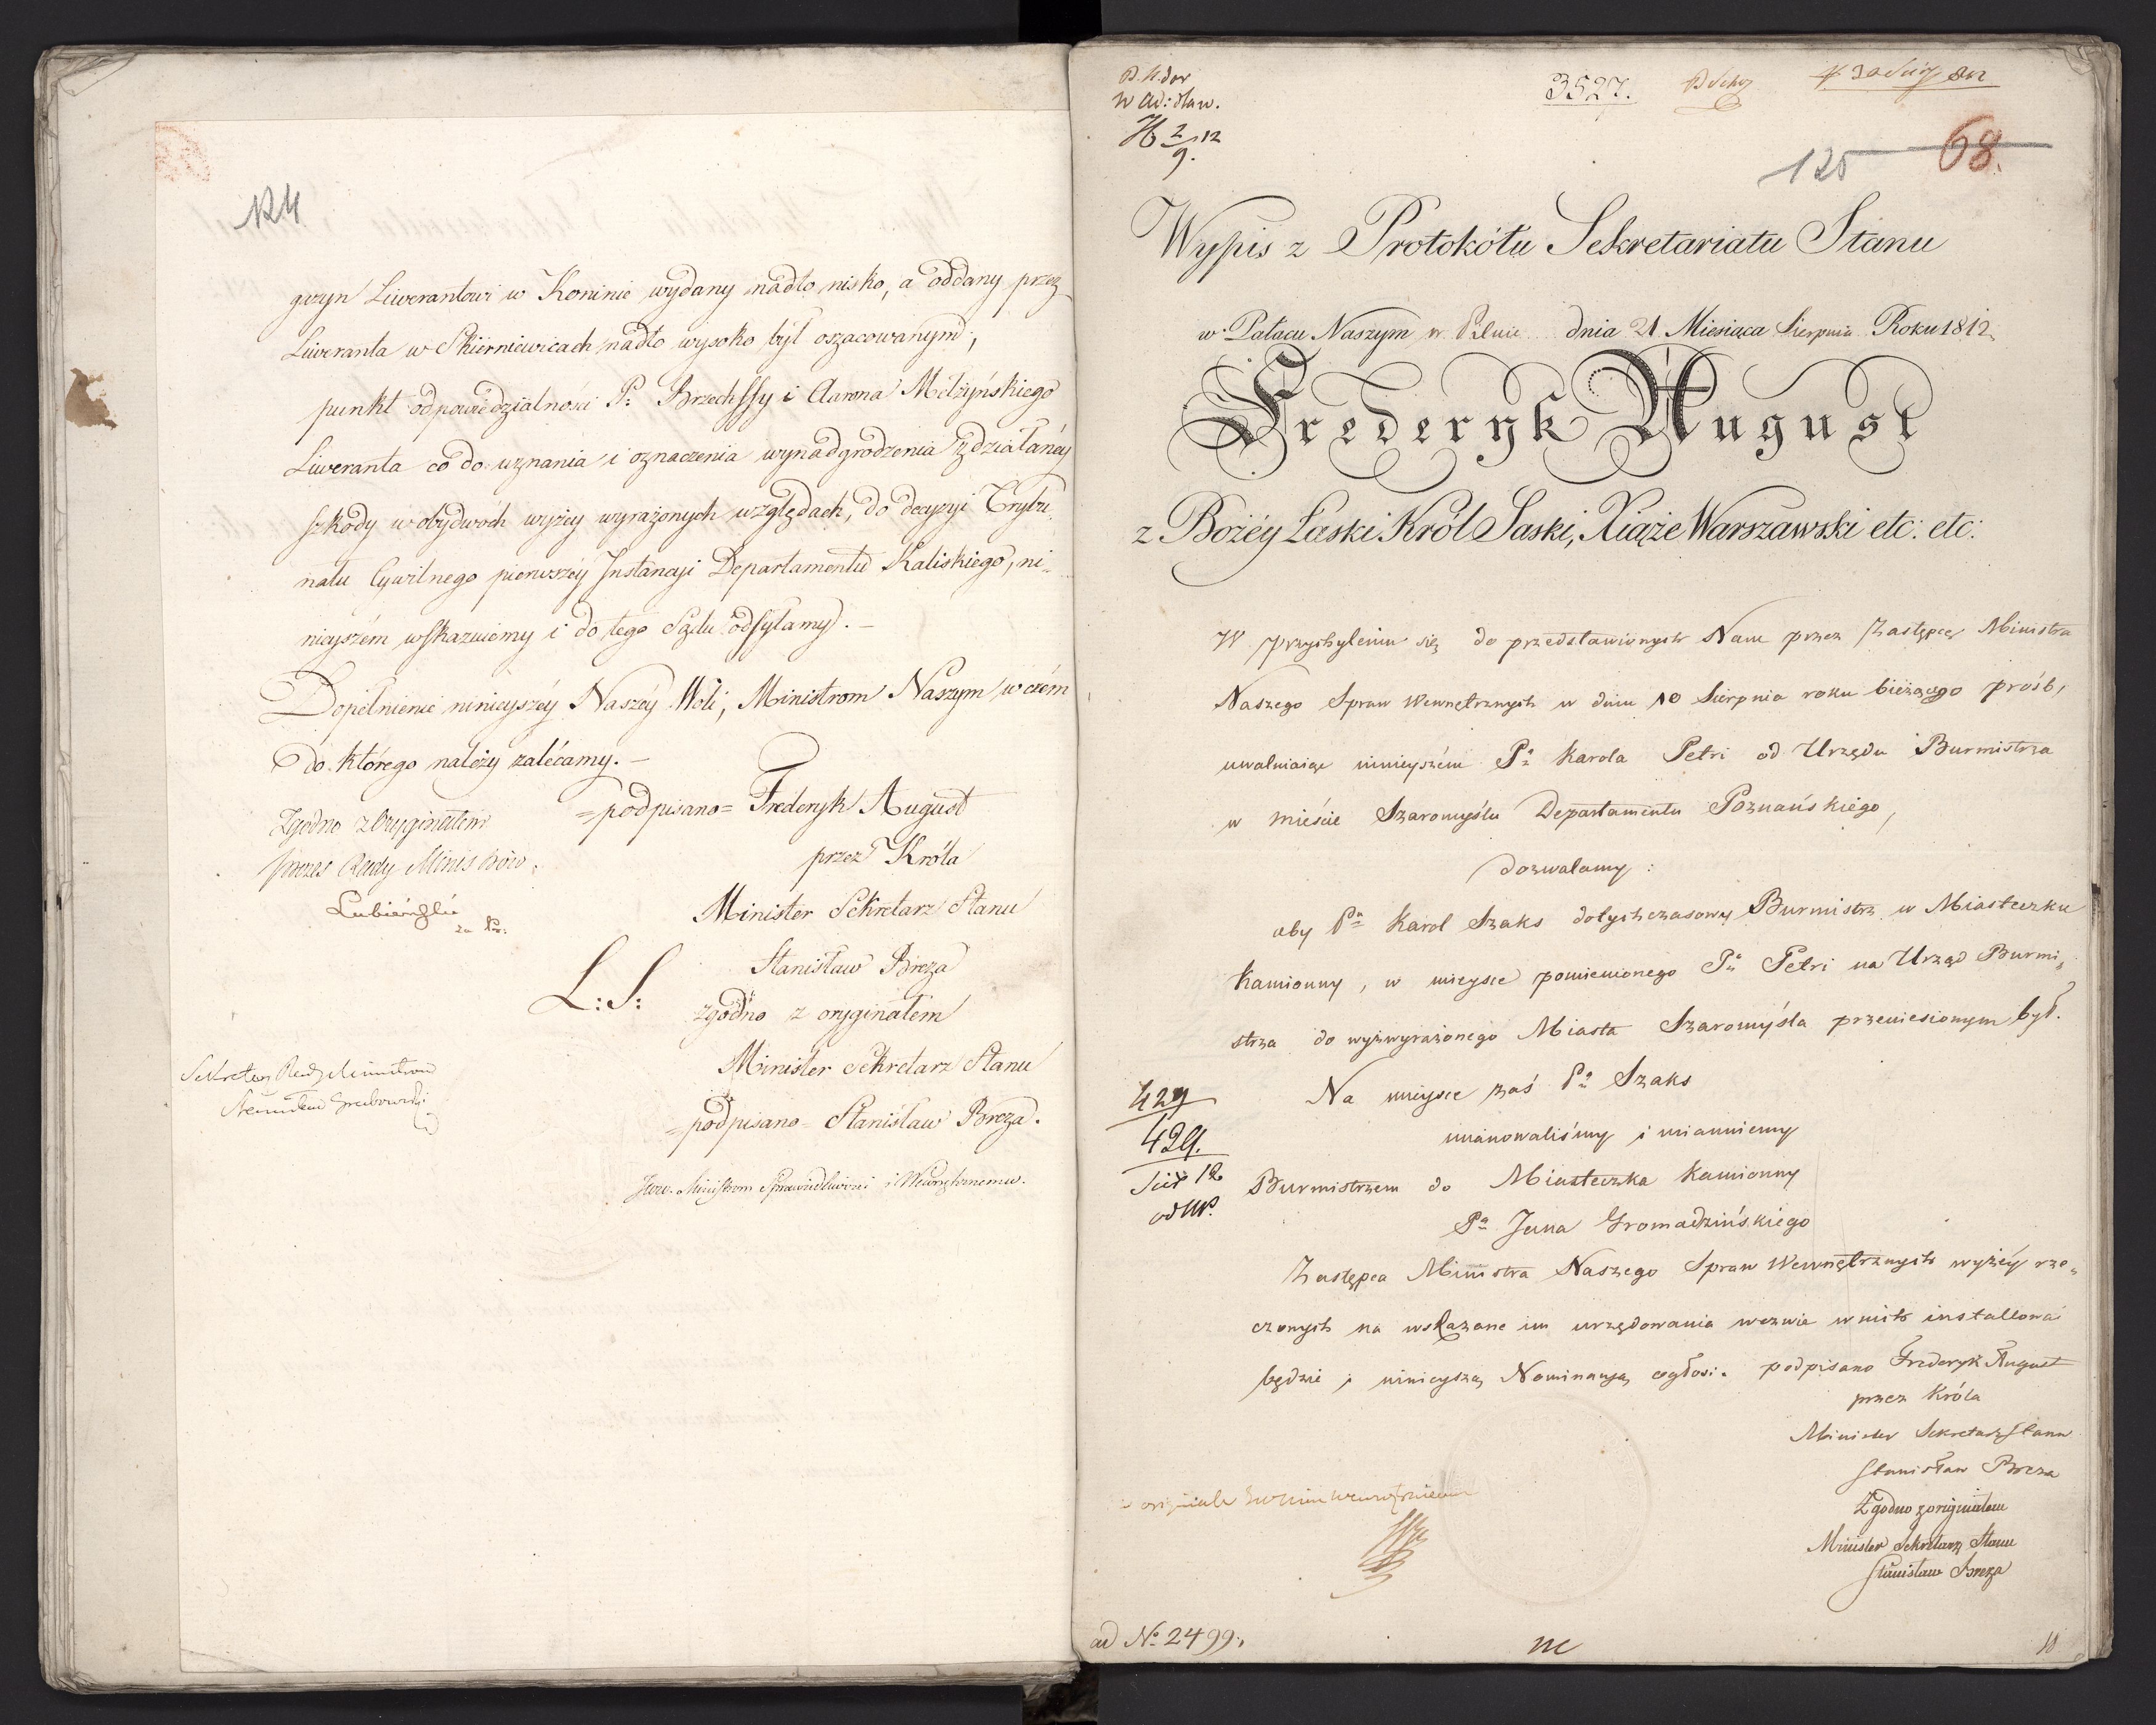 124
gazyn Liwerantowi w Koninie wydany nadto nisko, a oddany przez
Liweranta w Skierniewicach nadto wysoko był oszacowanym;
punkt odpowiedzialności P: Brzechffy i Aarona Mełżyńskiego
Liweranta co do uznania i oznaczenia wynadgrodzenia zdziałanéy
szkody w obydwóch wyżey wyrażonych względach, do decyzyi Trybu
nału Cywilnego pierwszéy Instancyi Departamentu Kaliskiego, ni-
nieyszém wskazuiemy i do tego Sądu odsyłamy. —
Dopełnienie ninieyszéy Naszéy Woli, Ministrom Naszym w czém
do którego należy zalécamy. —
=podpisano= Fréderyk August
przez Króla
Minister Sekretarz Stanu
Stanisław Breza
L: S: zgodno z oryginałem
Minister Sekretarz Stanu
=podpisano= Stanisław Breza.
Zgodno z Oryginałem
Prezes Rady Ministrów
Lubieński
Sekretarz Rady Ministrów
Stanisław Grabowski
JWW. Ministrom Sprawiedliwości i Wewnętrznemu.
3527.
125 68.
Wypis z Protokółu Sekretariatu Stanu
w Pałacu Naszym w Pilnie dnia 21 Miesiąca Sierpnia Roku 1812
Frederyk August
z Bożéy Łaski Król Saski, Xiąże Warszawski etc: etc:
W przychyleniu się do przedstawionych Nam przez Zastępcę Ministra
Naszego Spraw Wewnętrznych w dniu 10 Sierpnia roku bieżącego prośb,
uwalniaiąc ninieyszém Pa Karola Petri od Urzędu Burmistrza
w mieście Szaromyślu Departamentu Poznańskiego,
dozwalamy:
aby Pn Karol Szaks dotychczasowy Burmistrz w Miasteczku
Kamionny, w mieysce pomienionego Pa Petri na Urząd Burmi-
strza do wyżwyrażonego Miasta Szaromyśla przeniesionym był.
Na mieysce zaś Pa Szaks
mianowaliśmy i mianuiemy
Burmistrzem do Miasteczka Kamionny
Pa Jana Gromadzińskiego
Zastępca Ministra Naszego Spraw Wewnętrznych wyżéy rze-
czonych na wskazane im urzędowania wezwie w nich installowa
będzie i ninieyszą Nominacyą ogłosi. podpisano Frederyk August
przez Króla
Minister Sekretarz Stanu
Stanisław Breza
Zgodno z originałem
Minister Sekretarz Stanu
Stanisław Breza
429
429.
ad No 2499.